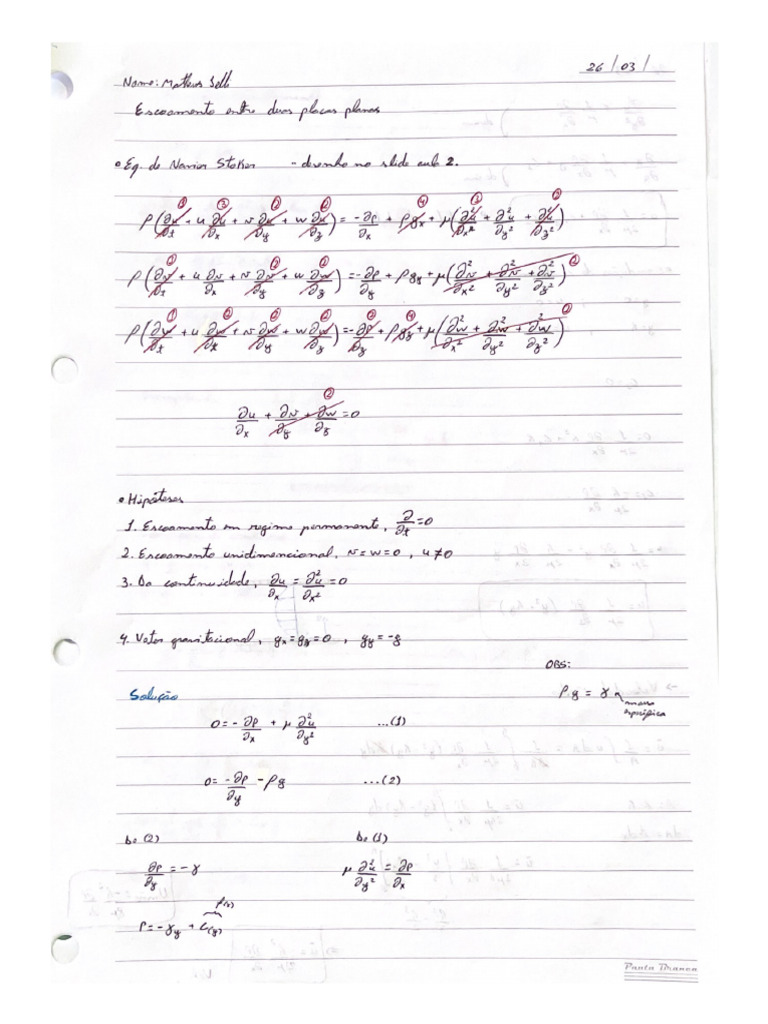 26/03/
Nome: Matheus Sell
Escoamento entre duas placas planas
• Eq. de Navier Stokes - desenho no slide aula 2.
① ③ ② ② ④ ③ ②
ρ(∂u/∂t + u ∂u/∂x + v ∂u/∂y + w ∂u/∂z) = -∂P/∂x + ρgx + μ(∂²u/∂x² + ∂²u/∂y² + ∂²u/∂z²)
ρ(∂v/∂t + u ∂v/∂x + v ∂v/∂y + w ∂v/∂z) = -∂P/∂y + ρgy + μ(∂²v/∂x² + ∂²v/∂y² + ∂²v/∂z²) ②
ρ(∂w/∂t + u ∂w/∂x + v ∂w/∂y + w ∂w/∂z) = -∂P/∂z + ρgz + μ(∂²w/∂x² + ∂²w/∂y² + ∂²w/∂z²)
②
∂u/∂x + ∂v/∂y + ∂w/∂z = 0
• Hipóteses
1. Escoamento em regime permanente, ∂/∂t = 0
2. Escoamento unidimencional, v = w = 0 , u ≠ 0
3. Da continuidade, ∂u/∂x = ∂²u/∂x² = 0
4. Vetor gravitacional, gx = gz = 0 , gy = -g
OBS:
ρg = γ massa específica
Solução
0 = -∂P/∂x + μ ∂²u/∂y² ...(1)
0 = -∂P/∂y - ρg ...(2)
De (2) De (1)
∂P/∂y = -γ μ ∂²u/∂y² = ∂P/∂x
f(x)
P = -γy + C(y)
Pauta Branca